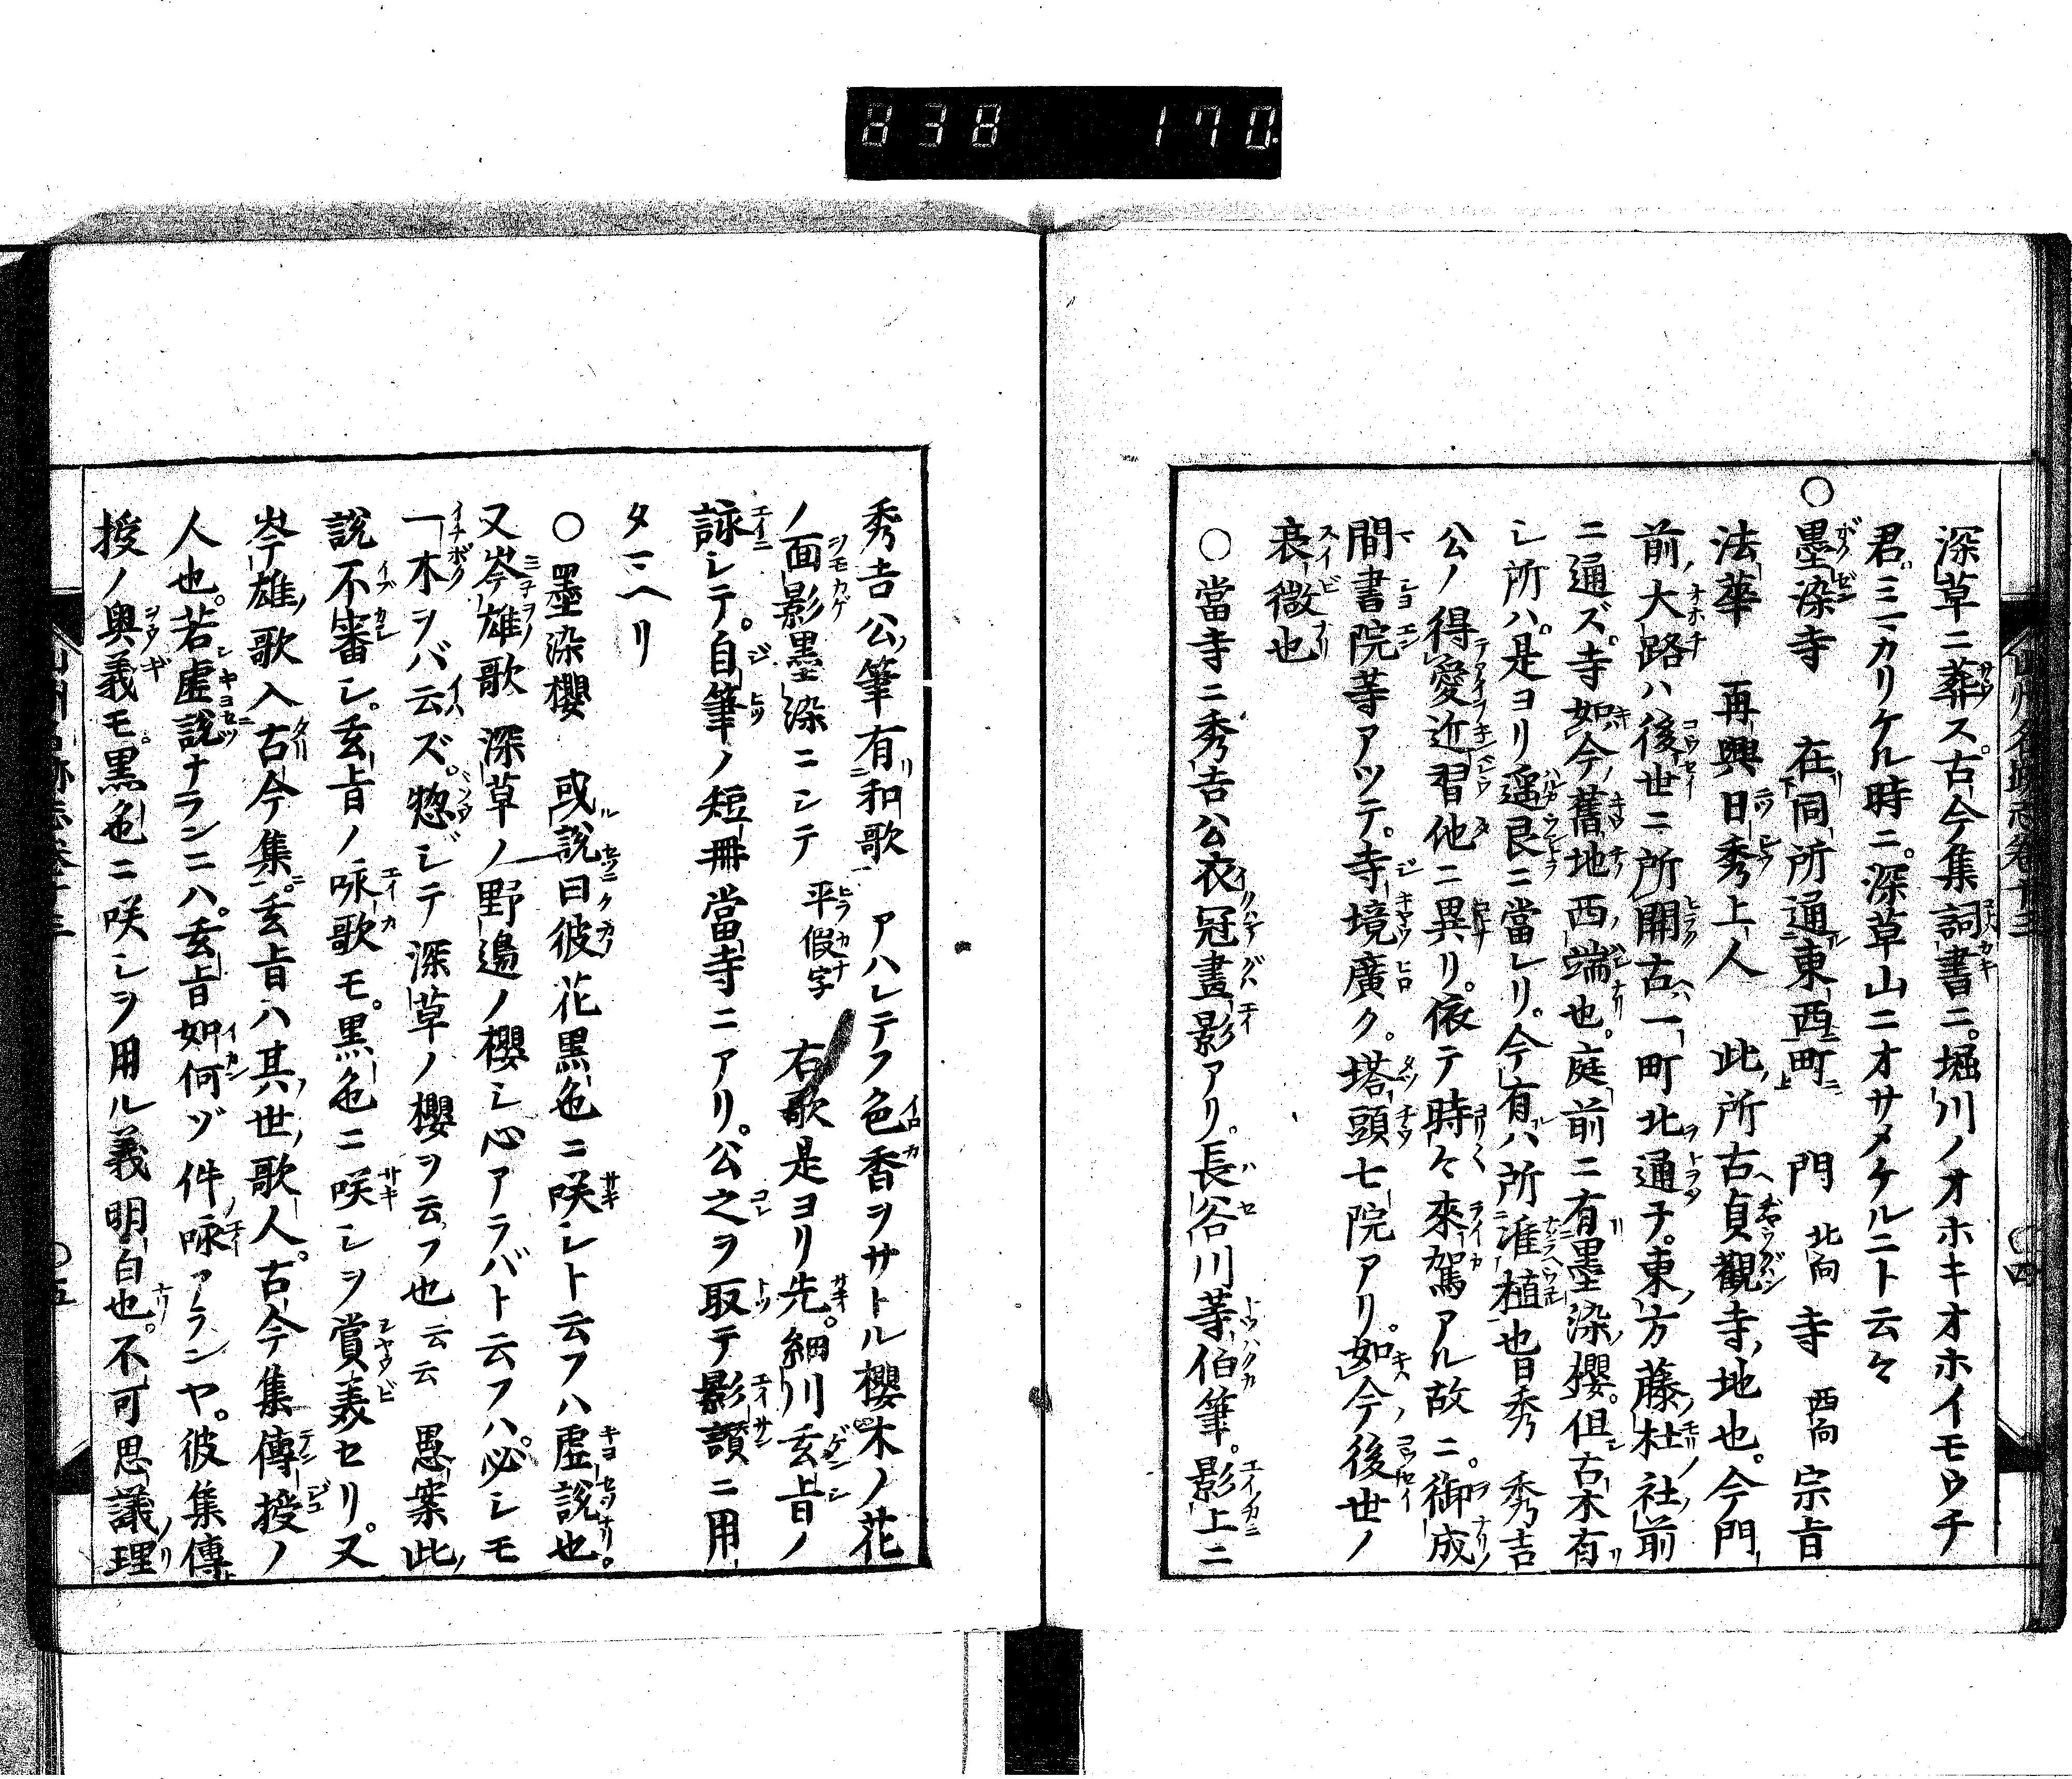 838 170
深草ニ葬ス古今集詞書ニ。堀川ノオホキオホイモウチ
君ミマカリケル時ニ。深草山ニオサメケルニト云々
○墨染寺 在同所通東西町 門 北向 寺 西向 宗旨
法華 再興日秀上人 此所古貞觀寺地也。今門
前大路ハ後世ニ所開古一町北通チ。東方藤杜社前
ニ通ズ。寺如今舊地西端也。庭前ニ有墨染櫻。但古木有
シ所ハ。是ヨリ遥艮ニ當レリ。今有ハ所准植也日秀 秀吉
公ノ得愛近習他ニ異リ。依テ時々來駕アル故ニ。御成
間書院等アツテ。寺境廣ク。塔頭七院アリ。如今後世ノ
衰微也
○當寺ニ秀吉公衣冠畫影アリ。長谷川等伯筆。影上ニ
秀吉公筆有和歌 アハレテフ色香ヲサトル櫻木ノ花
ノ面影墨染ニシテ 平假字 右歌是ヨリ先。細川玄旨ノ
詠シテ。自筆ノ短冊當寺ニアリ。公之ヲ取テ影讃ニ用
タマヘリ
○墨染櫻 或説曰彼花黒色ニ咲シト云フハ虚説也。
又岑雄歌 深草ノ野邊ノ櫻シ心アラバト云フハ。必シモ
一木ヲバ云ズ。惣ジテ深草ノ櫻ヲ云フ也云云 愚案此
説不審シ。玄旨ノ咏歌モ。黒色ニ咲シヲ賞美セリ。又
岑雄歌入古今集。玄旨ハ其世歌人。古今集傳授ノ
人也。若虚説ナランニハ。玄旨如何ヅ件咏アランヤ。彼集傳
授ノ奥義モ。黒色ニ咲シヲ用ル義明白也。不可思議理